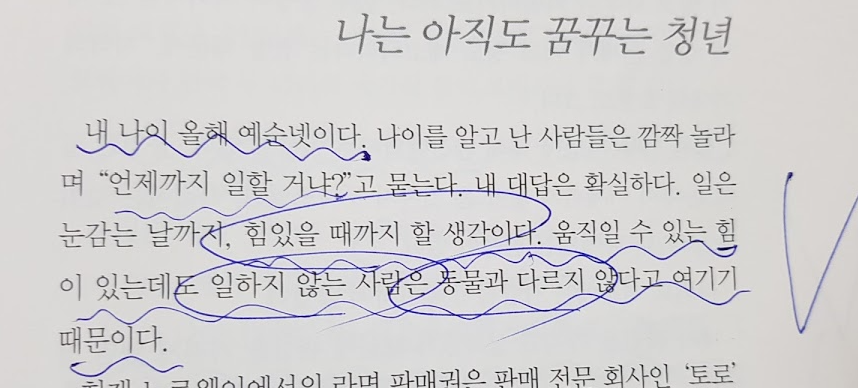 나는 아직도 꿈꾸는 청년
내 나이 올해 예순넷이다. 나이를 알고 난 사람들은 깜짝 놀라
며 “언제까지 일할 거냐?”고 묻는다. 내 대답은 확실하다. 일은
눈감는 날까지, 힘있을 때까지 할 생각이다. 움직일 수 있는 힘
이 있는데도 일하지 않는 사람은 동물과 다르지 않다고 여기기
때문이다.
라면 판매권은 판매 전문 회사인 ‘토로’